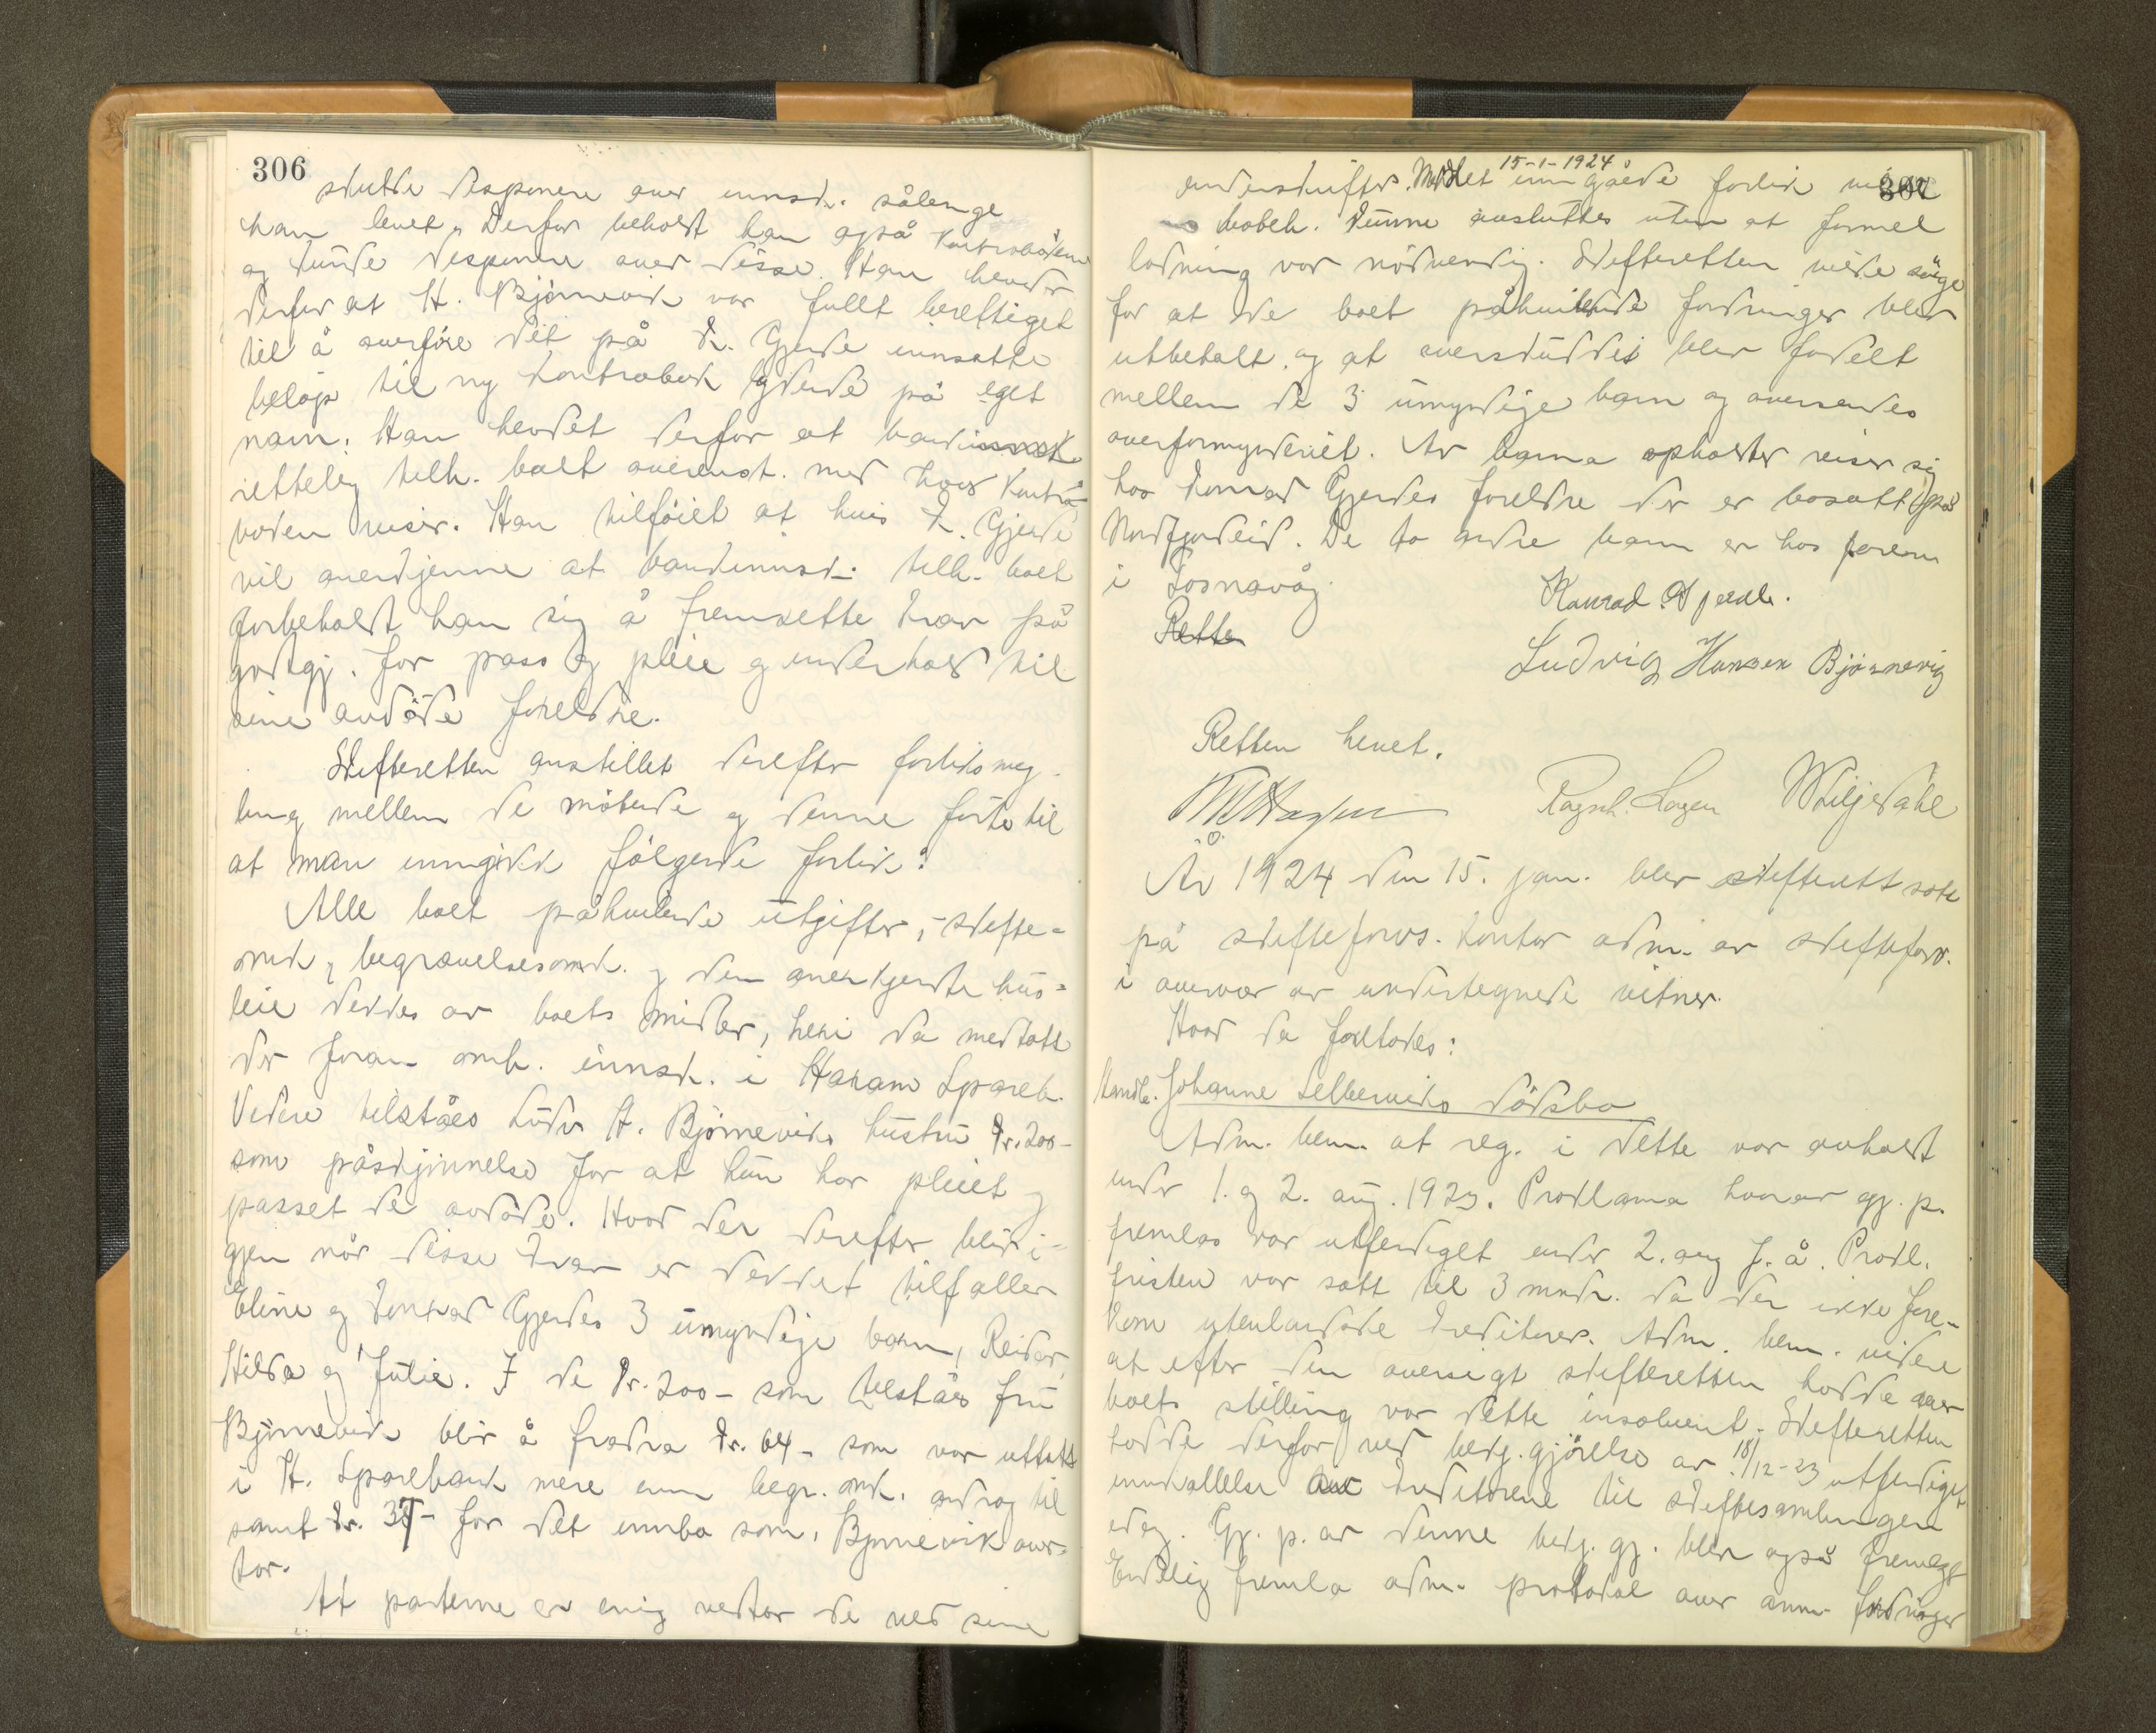 306
skulde disponere over innsk. sålenge
han levet. Derfor beholdt han også kontrabøkene
og kunde disponere over disse. Han hevder
derfor at H. Bjørnevik var fullt berettiget
til å overføre det på K. Gjerde innsatte
beløp til ny kontrabok lydende på eget
navn. Han hevdet derfor at bankinnsk
rettelig tilh. boet overenst. med hvad kontra-
boken viser. Han tilføiet at hvis K. Gjerde
vil anerkjenne at bankinnsk. tilh. boet
forbeholdt han sig å fremsette krav på
godtgj. for pass og pleie og underhold til
sine avdøde foreldre.
Skifteretten anstillet derefter forliksmeg-
ling mellem de møtende og denne førte til
at man inngikk følgende forlik:
Alle boet påhvilende utgifter, - skifte-
omk, begravelsesomk. og den anerkjente hus-
leie dekkes av boets midler, heri da medtatt
de foran omh. innsk. i Haram Spareb.
Videre tilståes Ludv. H. Bjørneviks hustru kr. 200-
som påskjønnelse for at hun har pleiet og
passet de avdøde. Hvad der derefter blir i-
gjen når disse krav er dekket tilfaller
Eline og Konrad Gjerdes 3 umyndige barn, Reidar,
Hilda og Julie. I de kr. 200- som tilståes fru
Bjørnevik blir å fradra kr. 64- som var uttatt
i H. Sparebank mere enn begr. omk. androg til
samt kr. 37- for det innbo som Bjørnevik over-
tar.
At partene er enig vedtar de ved sine
307
underskrifter. Med det 15-1-1924 inngåede forlik
bobeh. kunne avsluttes uten at formel
lodning var nødvendig. Skifteretten vilde sørge
for at de boet påhvilende fordringer blev
utbetalt og at overskuddet blev fordelt
mellem de 3 umyndige barn og oversendes
overformynderiet. Av barna opholder Reidar sig
hos Konrad Gjerdes foreldre der er bosatt på
Nordfjordeid. De to andre barn er hos faren
i Fosnavåg.
Konrad Gjerde.
Retten
Ludvig Hansen Bjørnevig
Retten hevet.
Ragnh. Hagen
W Liljedahl
År 1924 den 15. jan. blev skifterett satt
på skifteforv. kontor adm. av skifteforv.
i overvær av undertegnede vitner.
Hvor da foretoges:
Johanne Selberviks dødsbo
Adm. bem. at reg. i dette var avholdt
under 1. og 2. aug. 1923. Proklama hvorav gj. p.
fremlas var utferdiget under 2. aug f. å. Prokl.
fristen var satt til 3 mndr. da der ikke fore-
kom utenlandske kreditorer. Adm. bem. videre
at efter den oversigt skifteretten hadde over
boets stilling var dette insolvent. Skifteretten
hadde derfor ved bekj.gjørelse av 18/12-23 utferdiget
innkallelse av kreditorene til skiftesamlingen
idag. Gj. p. av denne bekj. gj. blev også fremlagt
Endelig fremla adm. protokol over anm. fordringer